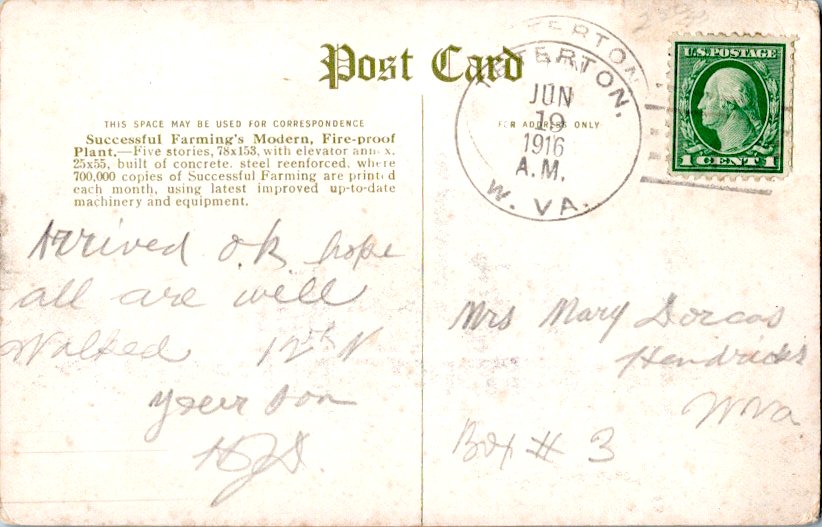 Post Card
THIS SPACE MAY BE USED FOR CORRESPONDENCE
Successful Farming's Modern, Fire-proof
Plant,—Five stories, 78x153, with elevator annex,
25x55, built of concrete, steel reenforced, where
700,000 copies of Successful Farming are printed
each month, using latest improved up-to-date
machinery and equipment.
FOR ADDRESS ONLY
JUN
19
1916
A.M.
W. VA.
U.S. POSTAGE
1 CENT 1
Arrived O.K. hope
all are well
Walked 12th N
your son
Mrs Mary Dorcas
Hendricks
W Va
Box # 3